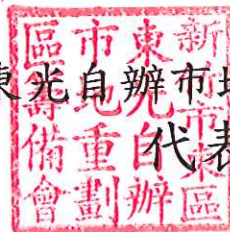 東光自辦市地
代表
新竹市東區
東光自辦
市地重劃
區籌備會